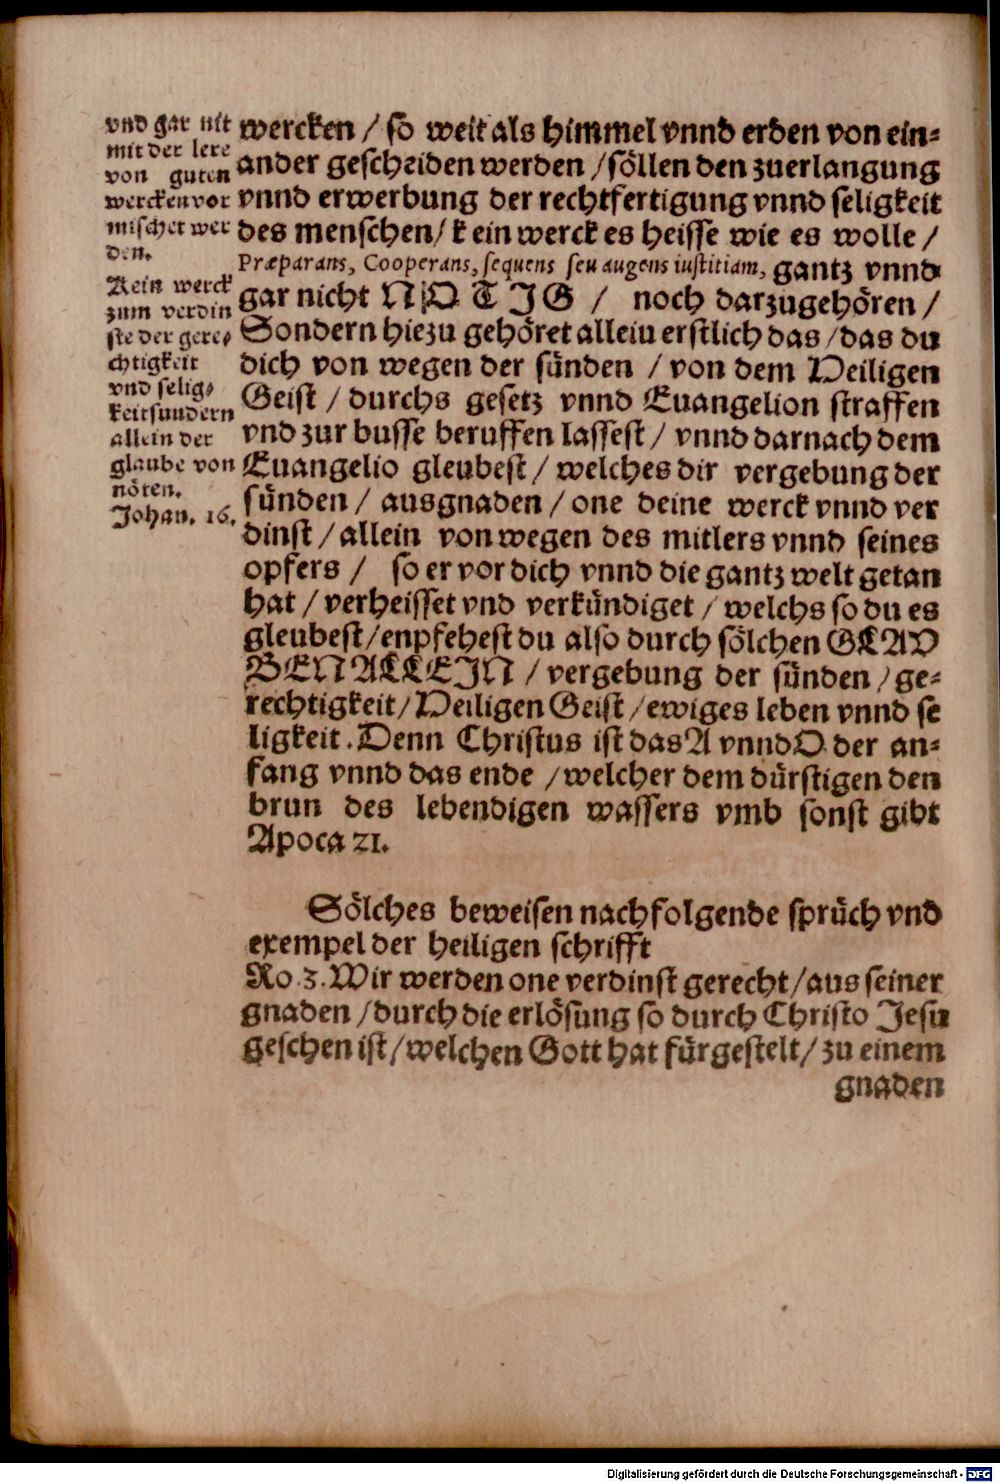 vnd gar nit
mit der lere
von guten
wercken vor
mischet wer
den.
Kein werck
zum verdin
ste der gere⸗
chtigkeit
vnd selig⸗
keit sundern
allein der
glaube von
nöten.
Johan. 16.
wercken / so weit als himmel vnnd erden von ein⸗
ander gescheiden werden / söllen den zuerlangung
vnnd erwerbung der rechtfertigung vnnd seligkeit
des menschen / kein werck es heisse wie es wolle /
Præparans, Cooperans, sequens seu augens iustitiam, gantz vnnd
gar nicht NOTIG / noch darzugehören /
Sondern hiezu gehöret allein erstlich das / das du
dich von wegen der sünden / von dem Heiligen
Geist / durchs gesetz vnnd Euangelion straffen
vnd zur busse beruffen lassest / vnnd darnach dem
Euangelio gleubest / welches dir vergebung der
sünden / aus gnaden / one deine werck vnnd ver
dinst / allein von wegen des mitlers vnnd seines
opfers / so er vor dich vnnd die gantz welt getan
hat / verheisset vnd verkündiget / welchs so du es
gleubest / enpfehest du also durch sölchen GLAV
BEN ALLEIN / vergebung der sünden / ge⸗
rechtigkeit / Heiligen Geist / ewiges leben vnnd se
ligkeit. Denn Christus ist das A vnnd O der an⸗
fang vnnd das ende / welcher dem dürstigen den
brun des lebendigen wassers vmb sonst gibt
Apoca 21.
Sölches beweisen nachfolgende sprüch vnd
exempel der heiligen schrifft
Ro. 3. Wir werden one verdinst gerecht / aus seiner
gnaden / durch die erlösung so durch Christo Jesu
geschen ist / welchen Gott hat fürgestelt / zu einem
gnaden
Digitalisierung gefördert durch die Deutsche Forschungsgemeinschaft - DFG